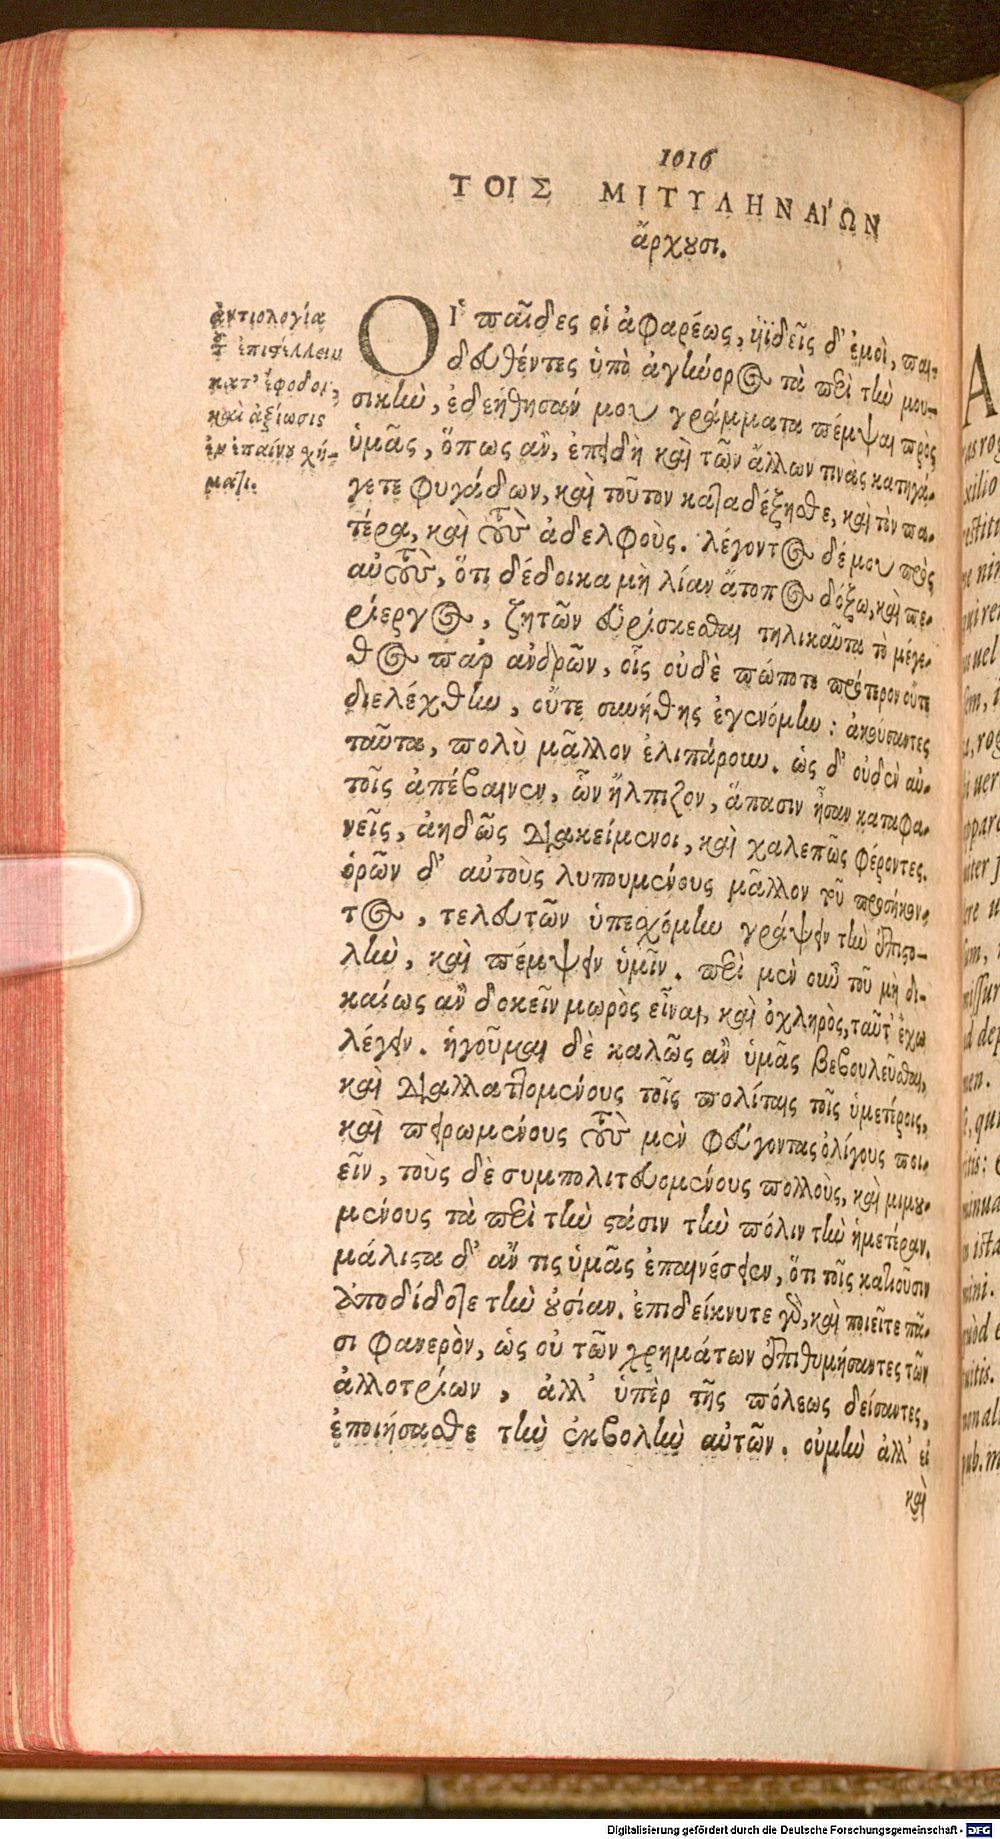 1016
ΤΟΙΣ ΜΙΤΥΛΗΝΑΙΏΝ
ἄρχουσι.
ἀιτιολογία
τοῦ ἐπιστέλλειν
κατ' ἔφοδον,
καὶ ἀξίωσις
ἐν ἐπαίνου χή-
ματι.
ΟἹ παῖδες οἱ ἀφαρέως, ὑϊδεῖς δ' ἐμοὶ, παι-
δευθέντες ὑπὸ ἀγήνορος τὰ περὶ τὴν μου-
σικὴν, ἐδεήθησάν μου γράμματα πέμψαι πρὸς
ὑμᾶς, ὅπως ἂν, ἐπειδὴ καὶ τῶν ἄλλων τινας κατηγά-
γετε φυγάδων, καὶ τοῦτον καταδέξησθε, καὶ τὸν πα-
τέρα, καὶ τοὺς ἀδελφούς. λέγοντος δέ μου πρὸς
αὐτοὺς, ὅτι δέδοικα μὴ λίαν ἄτοπος δόξω, καὶ πε-
ρίεργος, ζητῶν εὑρίσκεσθαι τηλικαῦτα τὸ μέγε-
θος παρ' ἀνδρῶν, οἷς οὐδὲ πώποτε πρότερον οὔτε
διελέχθην, οὔτε συνήθης ἐγενόμην: ἀκούσαντες
ταῦτα, πολὺ μᾶλλον ἐλιπάρουν. ὡς δ' οὐδὲν αὐ-
τοῖς ἀπέβαινεν, ὧν ἤλπιζον, ἅπασιν ἦσαν καταφα-
νεῖς, ἀηδῶς διακείμενοι, καὶ χαλεπῶς φέροντες.
ὁρῶν δ' αὐτοὺς λυπουμένους μᾶλλον τοῦ προσήκον-
τος, τελευτῶν ὑπεχόμην γράψειν τὴν ἐπιστο-
λὴν, καὶ πέμψειν ὑμῖν. περὶ μὲν οὖν τοῦ μὴ δι-
καίως ἂν δοκεῖν μωρὸς εἶναι, καὶ ὀχληρὸς, ταῦτ' ἔχω
λέγειν. ἡγοῦμαι δὲ καλῶς ἂν ὑμᾶς βεβουλεῦσθαι,
καὶ διαλλαττομένους τοῖς πολίταις τοῖς ὑμετέροις,
καὶ πειρωμένους τοὺς μὲν φεύγοντας ὀλίγους ποι-
εῖν, τοὺς δὲ συμπολιτευομένους πολλοὺς, καὶ μιμου-
μένους τὰ περὶ τὴν στάσιν τὴν πόλιν τὴν ἡμετέραν.
μάλιστα δ' ἄν τις ὑμᾶς ἐπαινέσειεν, ὅτι τοῖς κατιοῦσιν
ἀποδίδοτε τὴν οὐσίαν. ἐπιδείκνυτε γὰρ, καὶ ποιεῖτε πᾶ-
σι φανερὸν, ὡς οὐ τῶν χρημάτων ἐπιθυμήσαντες τῶν
ἀλλοτρίων, ἀλλ' ὑπὲρ τῆς πόλεως δείσαντες,
ἐποιήσασθε τὴν ἐκβολὴν αὐτῶν. οὐμὴν ἀλλ' εἰ
καὶ
Digitalisierung gefördert durch die Deutsche Forschungsgemeinschaft - DFG